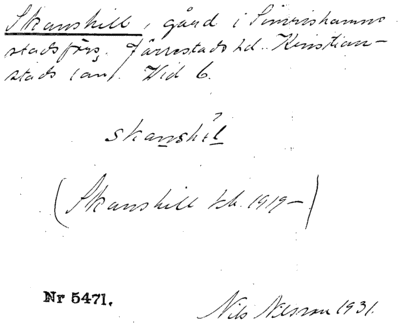 Skanshill, gård i Simrishamns
stadsförs. Järrestads hd. Kristian-
stads län. Vid 6.
skanshil
(Skanshill kb. 1919-)
Nr 5471.
Nils Nilsson 1931.